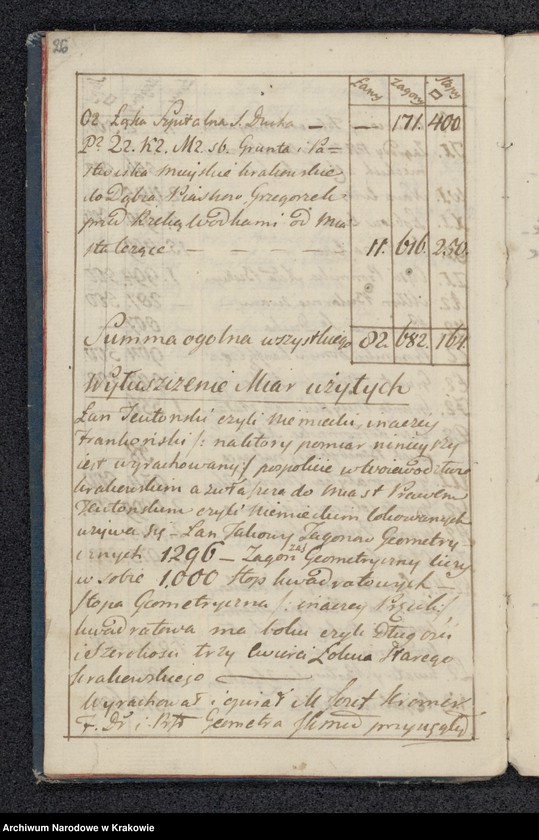 26
Łany Zagony Stopy □
O2. Łąka Szpitalna S. Ducha — — 171. 400
P2. Q2. R2. M2. sb. Grunta i Pa=
stwiska mieyskie krakowskie
do Dąbia, Piaskow, Grzegorzek
przed Rzeką wodkami od Mia
sta leżące — — — — 11. 616. 250.
Summa ogolna wszystkiego 82. 682. 161.
Wytłuszczenie Miar użytych
Łan Teutoński czyli Niemiecki, inaczey
Frankoński /: na ktory pomiar ninieyszy
iest wyrachowany :/ pospolicie w Woiewodztwie
krakowskim a zwłaszcza do Miast Prawem
Teutonskim czyli Niemieckim lokowanych
używa się – Łan takowy Zagonow Geometry-
cznych 1296 – Zagon zaś Geometryczny liczy
w sobie 1.000 stop kwadratowych —
Stopa Geometryczna /: inaczey Pręcik :/
kwadratowa ma boku czyli Długości
i Szerokości trzy ćwierci Łokcia Starego
krakowskiego
Wyrachował i opisał M. Jozef Kromer
F. Dr. i Geometra przysięgły
Archiwum Narodowe w Krakowie